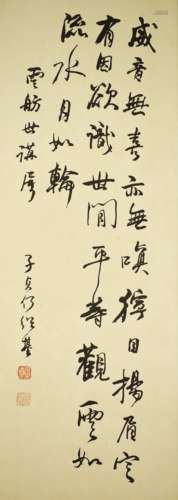 威音無喜亦無嗔獰目揚眉定
有因欲識世間平等觀雲如
流水月如輪
雲舫世講屬
子貞何紹基